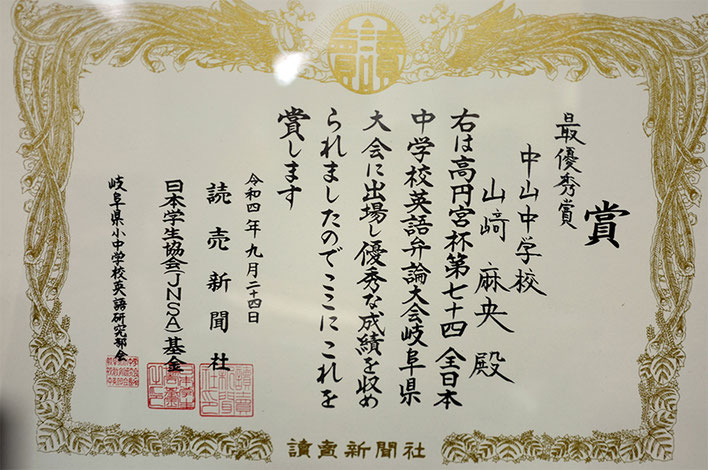 賞
最優秀賞
中山中学校
山﨑麻央殿
右は高円宮杯第七十四全日本
中学校英語弁論大会岐阜県
大会に出場し優秀な成績を收め
られましたのでここにこれを
賞します
令和四年九月二十四日
読売新聞社
日本学生協会(JNSA)基金
岐阜県小中学校英語研究部会
讀賣新聞社